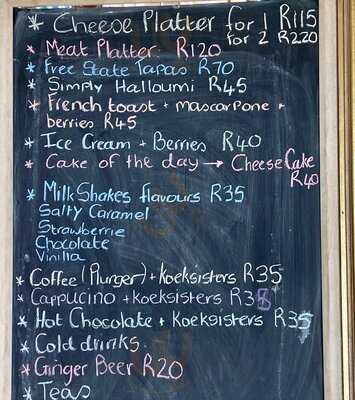 * Cheese Platter for 1 R115
for 2 R220
* Meat Platter. R120
* Free State Tapas R70
* Simply Halloumi R45
* French toast + mascarpone +
berries R45
* Ice Cream + Berries R40
* Cake of the day → Cheese Cake
R40
* Milk Shakes flavours R35
Salty Caramel
Strawberrie
Chocolate
Vinilla
* Coffee (Plunger) + Koeksisters R35
* Cappucino + Koeksisters R35
* Hot Chocolate + Koeksisters R35
* Cold drinks.
* Ginger Beer R20
* Teas